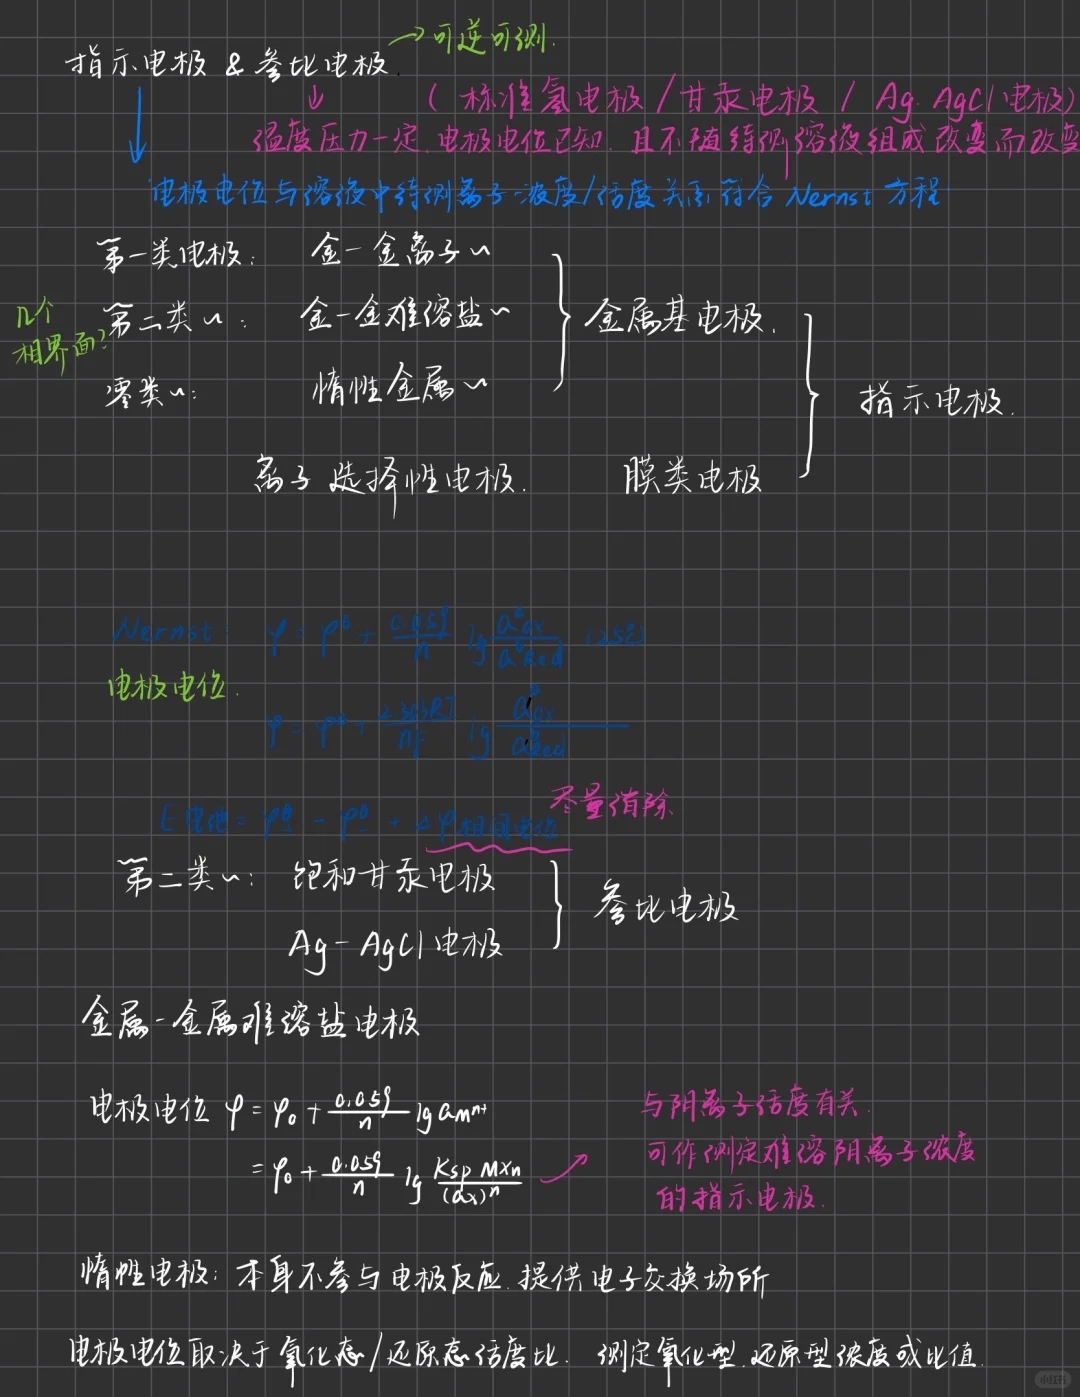 →可逆可测.
指示电极 & 参比电极.
(标准氢电极 / 甘汞电极 / Ag. AgCl电极)
温度压力一定. 电极电位已知. 且不随待测溶液组成改变而改变
电极电位与溶液中待测离子浓度/活度关系符合Nernst方程
第一类电极: 金-金离子~
几个
相界面?
第二类~: 金-金难溶盐~ 金属基电极.
零类~: 惰性金属~
指示电极.
离子选择性电极. 膜类电极
Nernst: φ = φθ + 0.059/n lg a^a Ox / a^b Red (25℃)
电极电位.
φ = φθ + 2.303RT/nF lg a^a Ox / a^b Red
尽量消除
E电池 = φθ+ - φθ- + Δφ相间电位
第二类~: 饱和甘汞电极
Ag-AgCl电极
参比电极
金属-金属难溶盐电极
电极电位 φ = φ0 + 0.059/n lg aMⁿ⁺
= φ0 + 0.059/n lg Ksp MXn/(ax)ⁿ
与阴离子活度有关.
可作测定难溶阴离子浓度
的指示电极.
惰性电极: 本身不参与电极反应. 提供电子交换场所
电极电位取决于氧化态/还原态活度比. 测定氧化型.还原型浓度或比值.
小红书